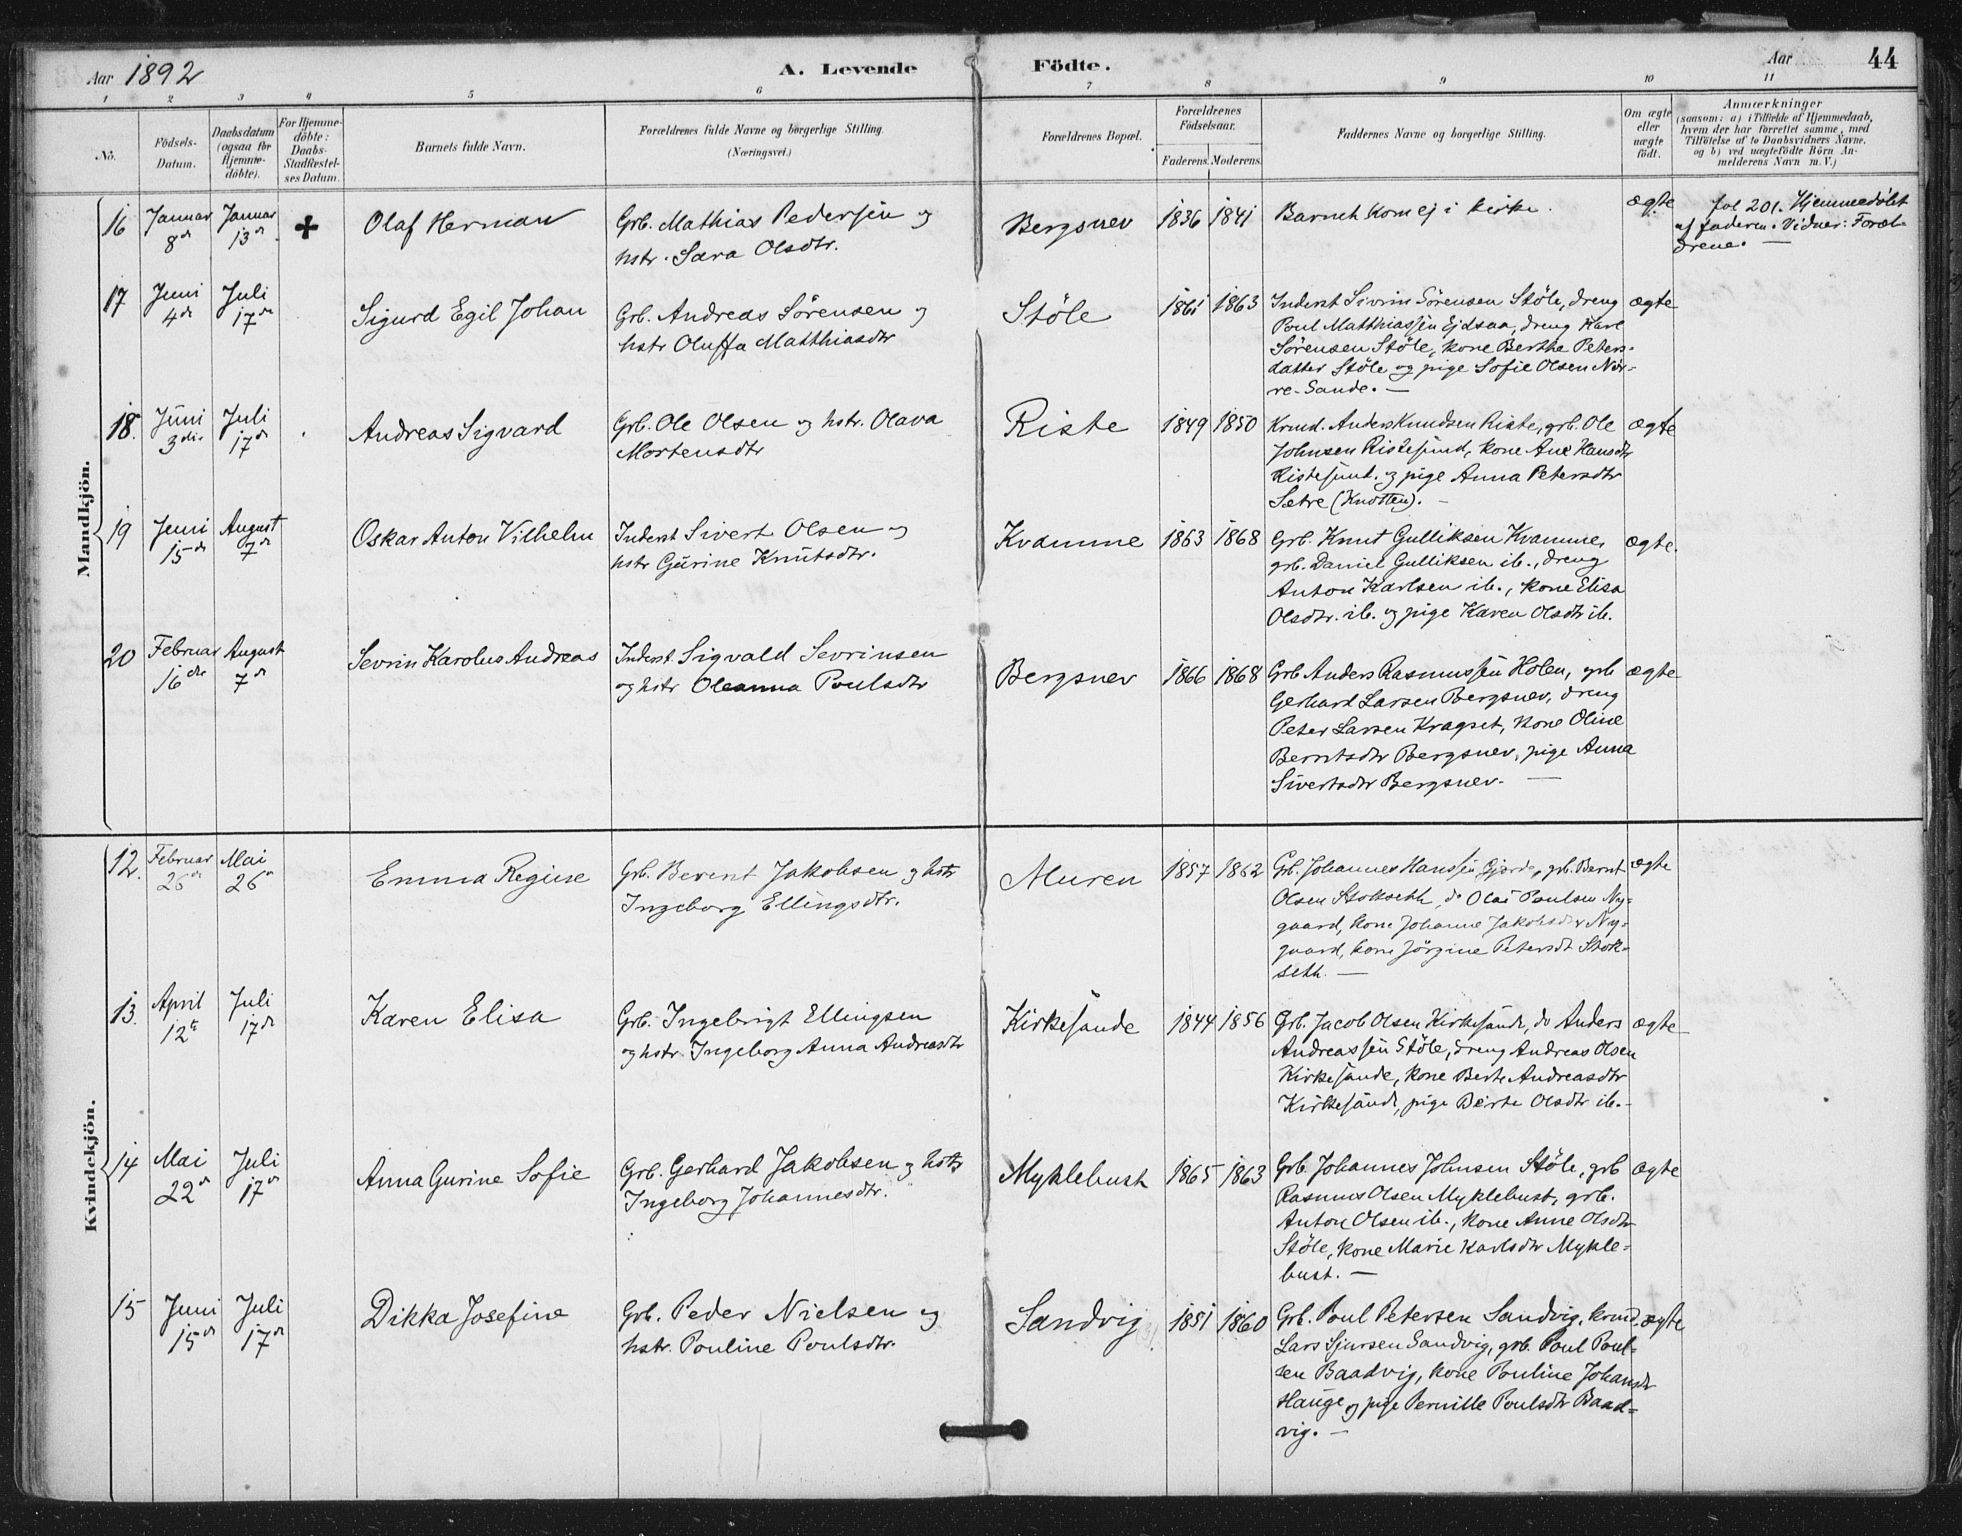 Aar 1892
A. Levende Födte.
Aar
44
1 2 3 4 5 6 7 8 9 10 11
No.
Födsels-Datum.
Daabsdatum (ogsaa for Hjemme-döbte).
For Hjemme-döbte: Daabs-Stadfæstel-ses Datum.
Barnets fulde Navn.
Forældrenes fulde Navne og borgerlige Stilling.
(Næringsvei.)
Forældrenes Bopæl.
Forældrenes Födselsaar.
Faderens. Moderens.
Faddernes Navne og borgerlige Stilling.
Om ægte eller uægte födt.
Anmærkninger
(saasom: a) i Tilfælde af Hjemmedaab,
hvem der har forrettet samme, med
Tilföielse af to Daabsvidners Navne,
og b) ved uægtefödte Börn An-
melderens Navn m. V.)
Mandkjön.
16 Januar 8de Januar 13de + Olaf Herman
Grb. Mathias Pedersen og
hstr. Sara Olsdtr.
Bergsnev 1836 1841 Barnet kom ej i kirke. ægte
fol 201. Hjemmedöbt
af faderen. Vidner: Foræl-
drene. —
17 Juni 4de Juli 17de Sigurd Egil Johan
Grb. Andreas Sörensen og
hstr Oluffa Matthiasdtr
Stöle 1861 1863
Inderst Sivrin Sörensen Stöle, dreng
Poul Matthiassen Ejdsaa, dreng Karl
Sörensen Stöle, kone Berthe Peters-
datter Stöle og pige Sofie Olsen Nör-
re-Sande. —
ægte
18. Juni 3die Juli 17de Andreas Sigvard
Grb. Ole Olsen og hstr. Olava
Mortensdtr
Riste 1849 1850
Krmd. Anders Knudsen Riste, grb. Ole
Johnsen Ristesund, kone Ane Hansdtr
Ristesund. og pige Anna Petersdtr
Sætre (Knotten). —
ægte
19 Juni 15de August 7de Oskar Anton Vilhelm
Inderst Sivert Olsen og
hstr Gurine Knutsdtr.
Kvamme 1863 1868
Grb. Knut Gulliksen Kvamme,
grb. Daniel Gulliksen ib., dreng
Anton Karlsen ib., kone Elisa
Olsdtr. ib. og pige Karen Olsdtr ib.
ægte.
20 Februar 16de August 7de Sevrin Karolus Andreas
Inderst Sigvald Sevrinsen
og hstr Oleanna Poulsdtr
Bergsnev 1866 1868
Grb Anders Rasmussen Holen, grb
Gerhard Larsen Bergsnev, dreng
Peter Larsen Kragset, kone Oline
Berntsdtr Bergsnev, pige Anna
Sivertsdtr Bergsnev. —
ægte
Kvindekjön.
12. Februar 26de Mai 26de Emma Regine
Grb. Berent Jakobsen og hstr
Ingeborg Ellingsdtr.
Muren 1857 1862
Grb. Johannes Hanssen Gjerde, grb. Bernt
Olsen Stokseth, do Olai Poulsen Ny-
gaard, kone Johanne Jakobsdtr Ny-
gaard, kone Jörgine Petersdt Stok-
seth. —
ægte
13. April 12te Juli 17de Karen Elisa
Grb. Ingebrigt Ellingsen
og hstr. Ingeborg Anna Andreasdtr
Kirkesande 1844 1856
Grb. Jacob Olsen Kirkesande, do Anders
Andreassen Stöle, dreng Andreas Olsen
Kirkesande, kone Berte Andreasdtr
Kirkesande, pige Berte Olsdtr ib. -
ægte
14 Mai 22de Juli 17de Anna Gurine Sofie
Grb. Gerhard Jakobsen og hstr
Ingeborg Johannesdtr.
Myklebust 1865 1863
Grb. Johannes Johnsen Stöle, grb
Rasmus Olsen Myklebust, grb.
Anton Olsen ib., kone Anne Olsdtr
Stöle, kone Marie Karlsdtr Mykle-
bust. —
ægte
15 Juni 15de Juli 17de Dikka Josefine
Grb. Peder Nielsen og
hstr. Pouline Poulsdtr.
Sandvig 1851 1860
Grb. Poul Petersen Sandvig, krmd.
Lars Sjursen Sandvig, grb. Poul Poul-
sen Baadvig, kone Pouline Johansdtr
Hauge og pige Pernille Poulsdtr Baad-
vig. —
ægte